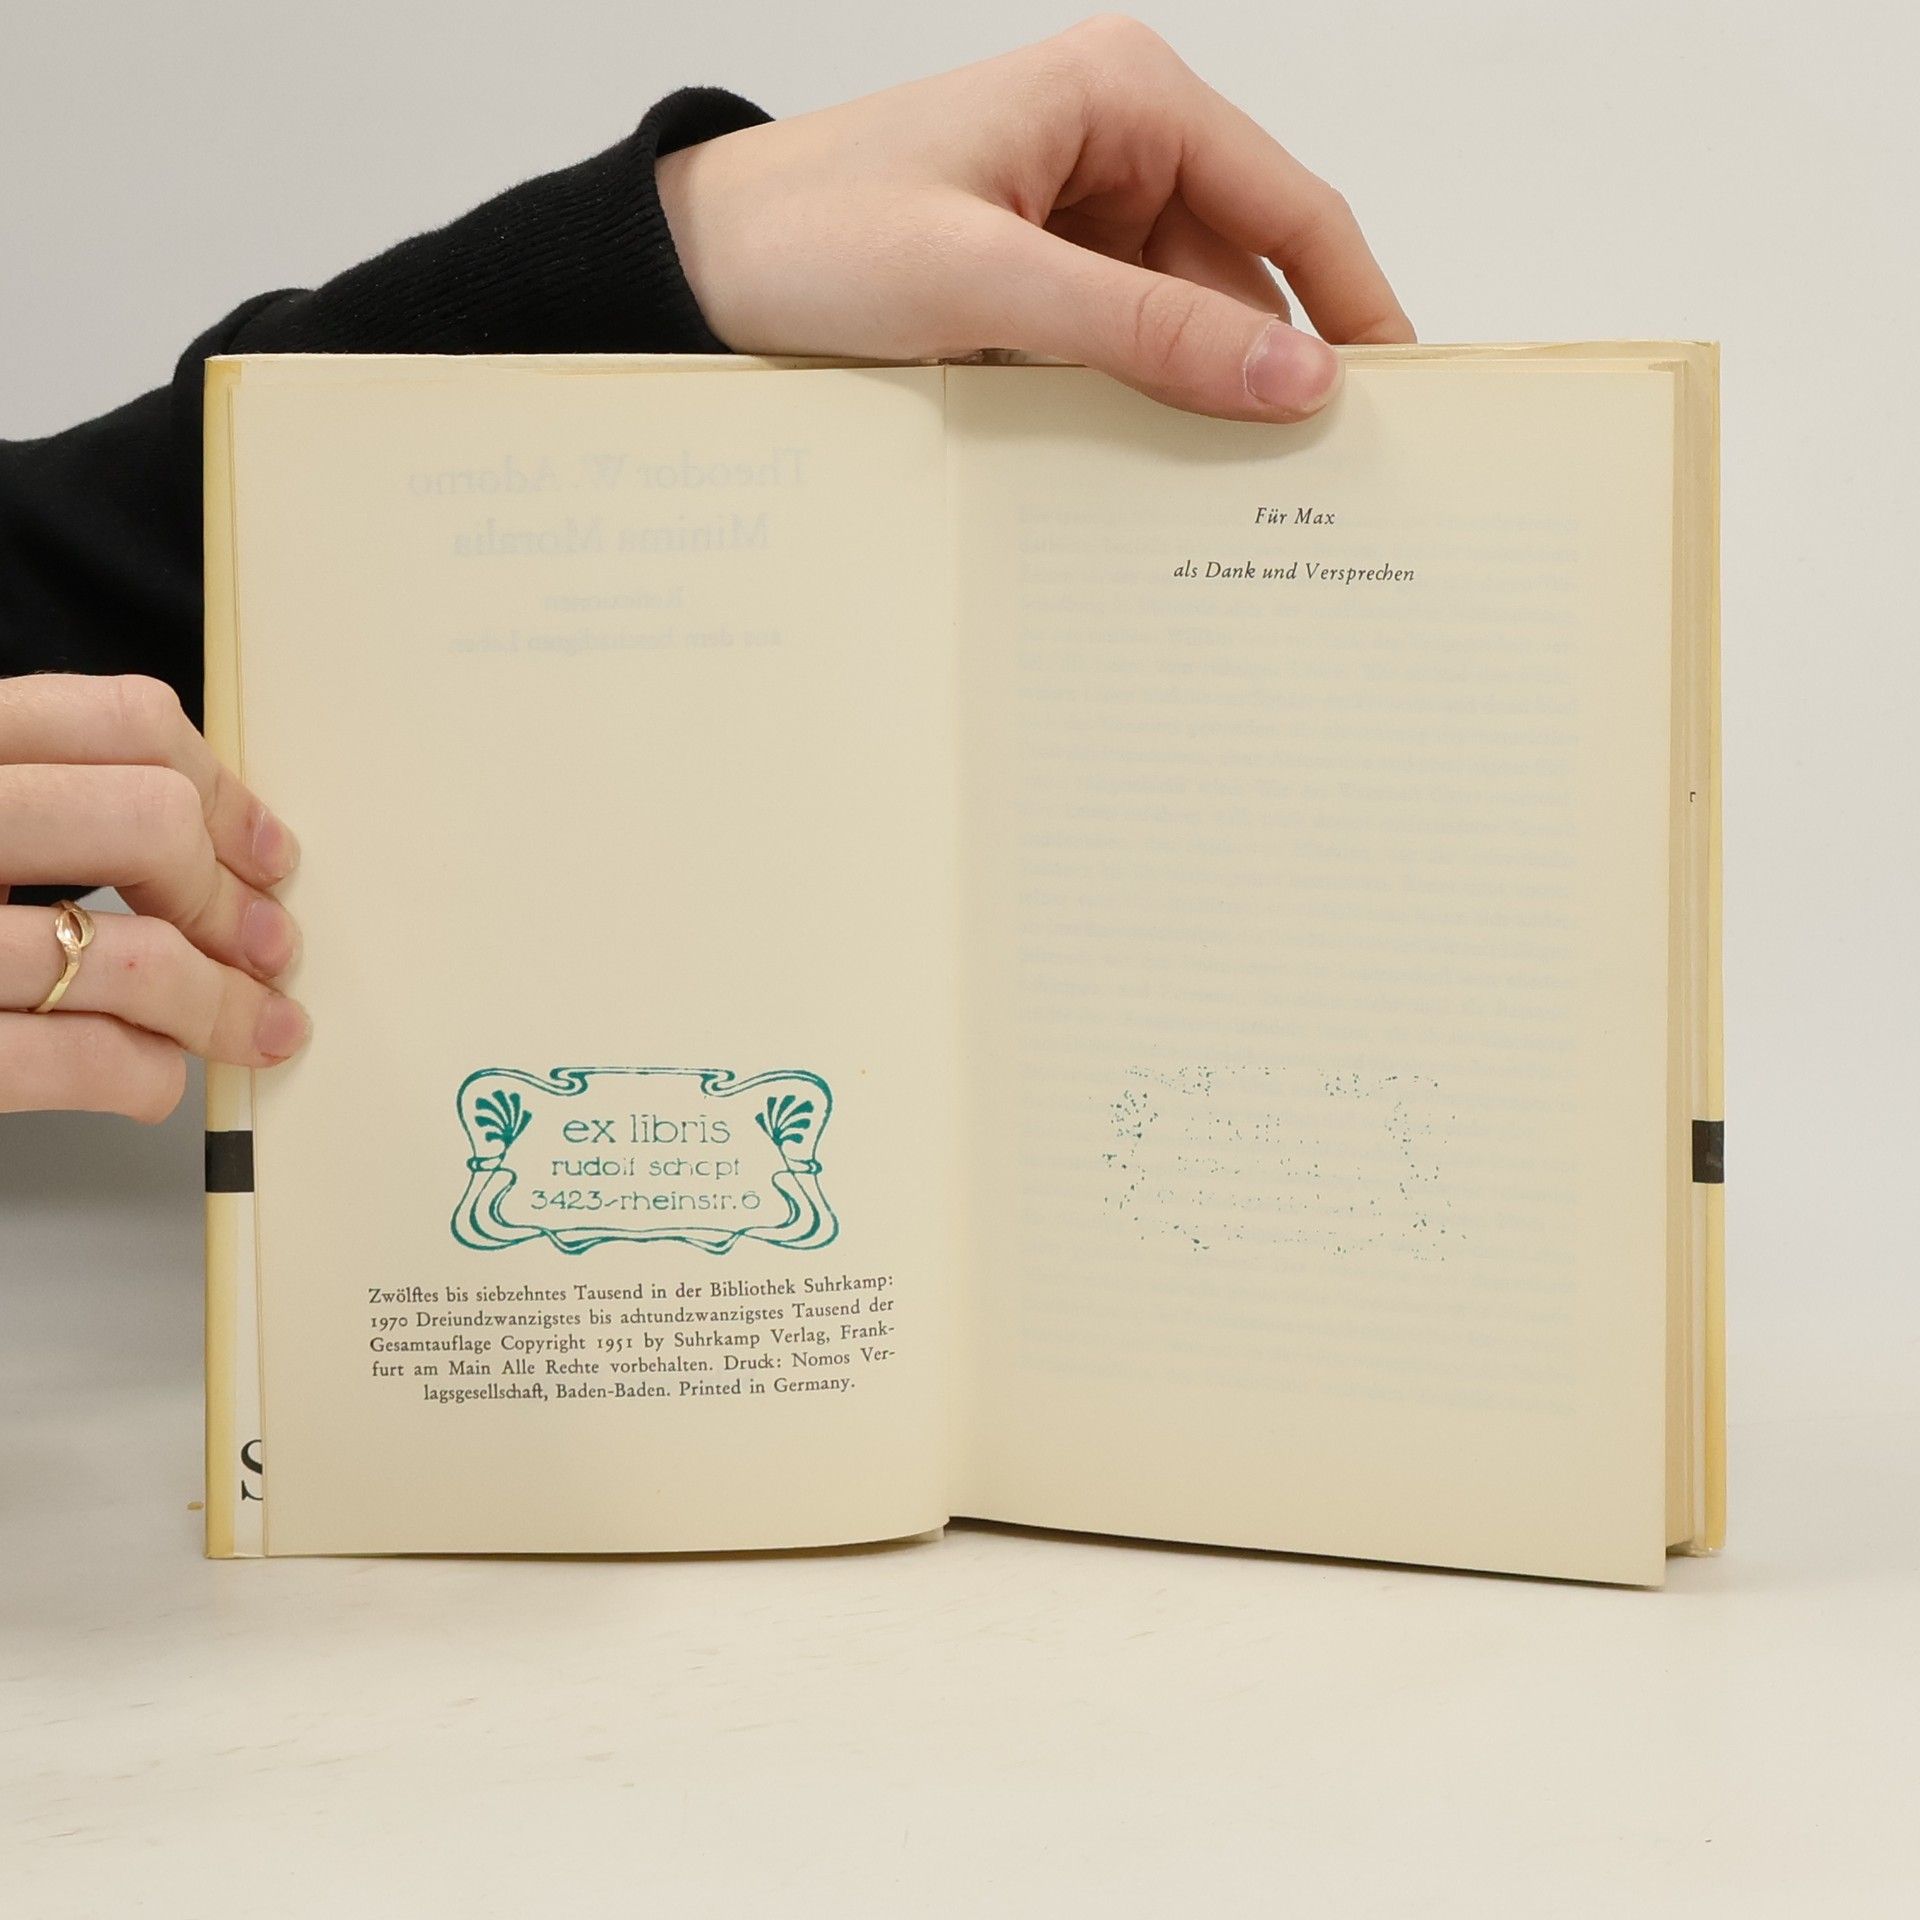 Theodor W. Adorno
Minima Moralia
Reflexionen
aus dem beschädigten Leben
ex libris
rudolf
3423-rheinstr. 6
Zwölftes bis siebzehntes Tausend in der Bibliothek Suhrkamp:
1970 Dreiundzwanzigstes bis achtundzwanzigstes Tausend der
Gesamtauflage Copyright 1951 by Suhrkamp Verlag, Frank-
furt am Main Alle Rechte vorbehalten. Druck: Nomos Ver-
lagsgesellschaft, Baden-Baden. Printed in Germany.
S
Für Max
als Dank und Versprechen